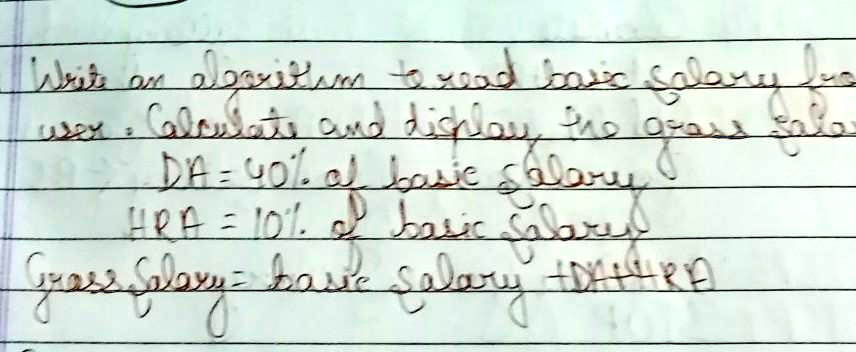 Write an algorithm to read basic salary fro
user. Calculate and display the grass sala
DA = 40% of basic salary
HRA = 10% of basic salary
Grass Salary = basic salary + DA + HRA